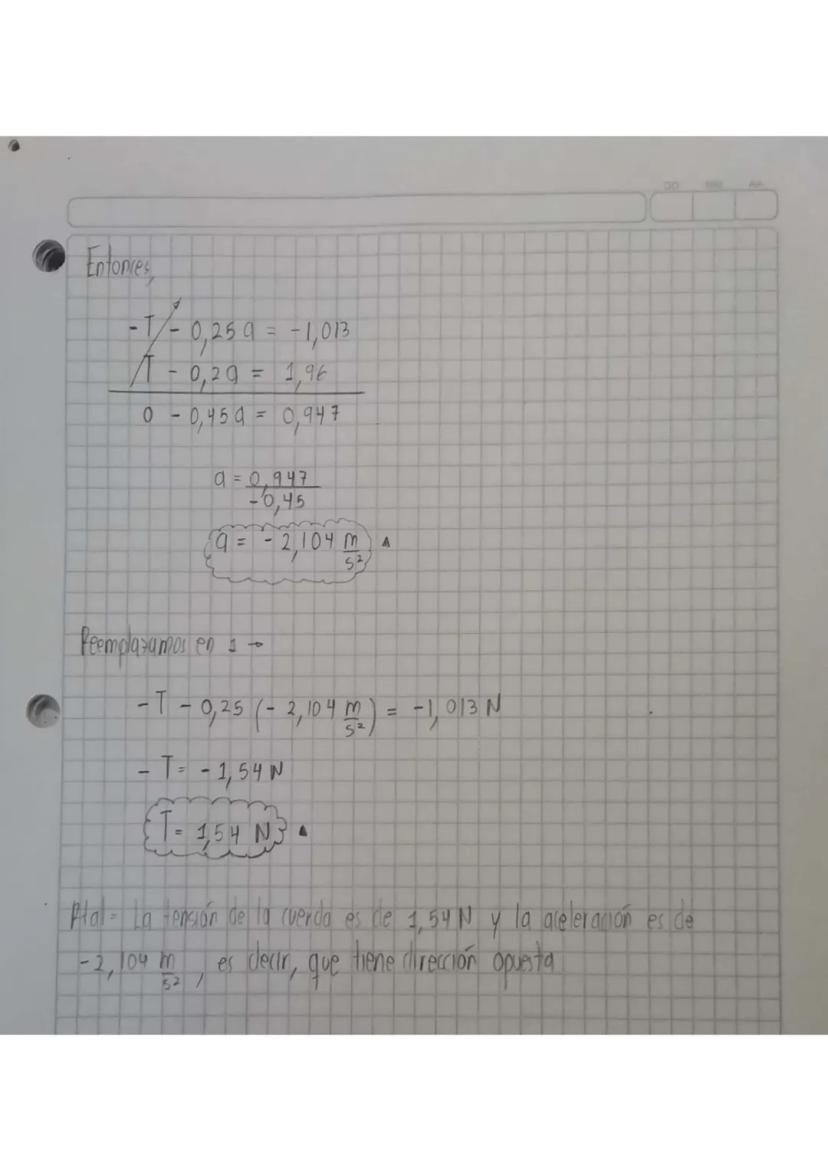 DD MM AA
Entonces,
-T - 0,25a = -1,013
T - 0,2a = 1,96
0 - 0,45a = 0,947
a = 0,947
-0,45
a = - 2,104 m
s²
Reemplazamos en 1 →
-T - 0,25 (- 2,104 m/s²) = -1,013 N
- T = - 1,54 N
T = 1,54 N
Rta/= La tensión de la cuerda es de 1,54 N y la aceleración es de
-2,104 m/s², es decir, que tiene dirección opuesta